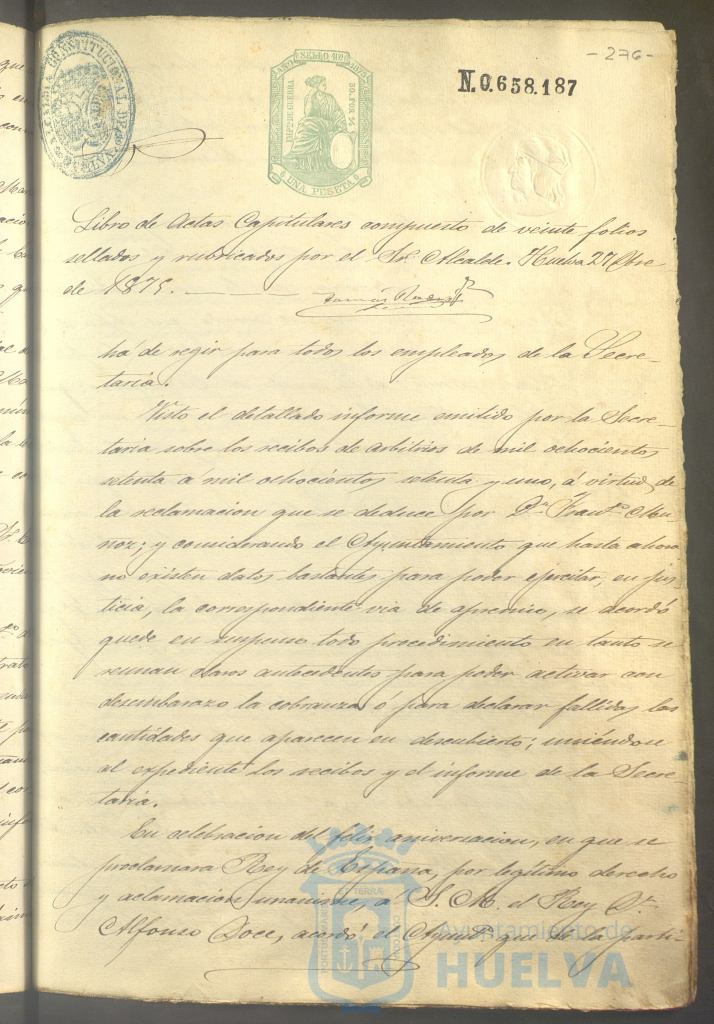 - 276 -
ALCALDIA CONSTITUCIONAL DE HUELVA
AÑO SELLO 10º 1875
IMPº DE GUERRA
50 POR %
UNA PESETA
N.0.658.187
Libro de Actas Capitulares compuesto de veinte folios
sellados y rubricados por el Sr. Alcalde. Huelva 27 Obre
de 1875.
há de regir para todos los empleados de la Secre-
taria.
Visto el detallado informe emitido por la Secre-
taria sobre los recibos de arbitrios de mil ochocientos
setenta á mil ochocientos setenta y uno, á virtud de
la reclamacion que se deduce por Dn. Francº Mu-
ñoz; y considerando el Ayuntamiento que hasta ahora
no existen datos bastantes para poder ejercitar, en jus-
ticia, la correspondiente via de apremio, se acordó
quede en suspenso todo procedimiento en tanto se
reunan claros antecedentes para poder activar con
desembarazo la cobranza ó para declarar fallidas las
cantidades que aparecen en descubierto; uniéndose
al expediente los recibos y el informe de la Secre-
taria.
En celebracion del feliz aniversacion, en que se
proclamara Rey de España, por legítimo derecho
y aclamacion unanime, a S. M. el Rey Dn.
Alfonso Doce, acordó el Ayuntº que se la parti-
Ayuntamiento de
HUELVA